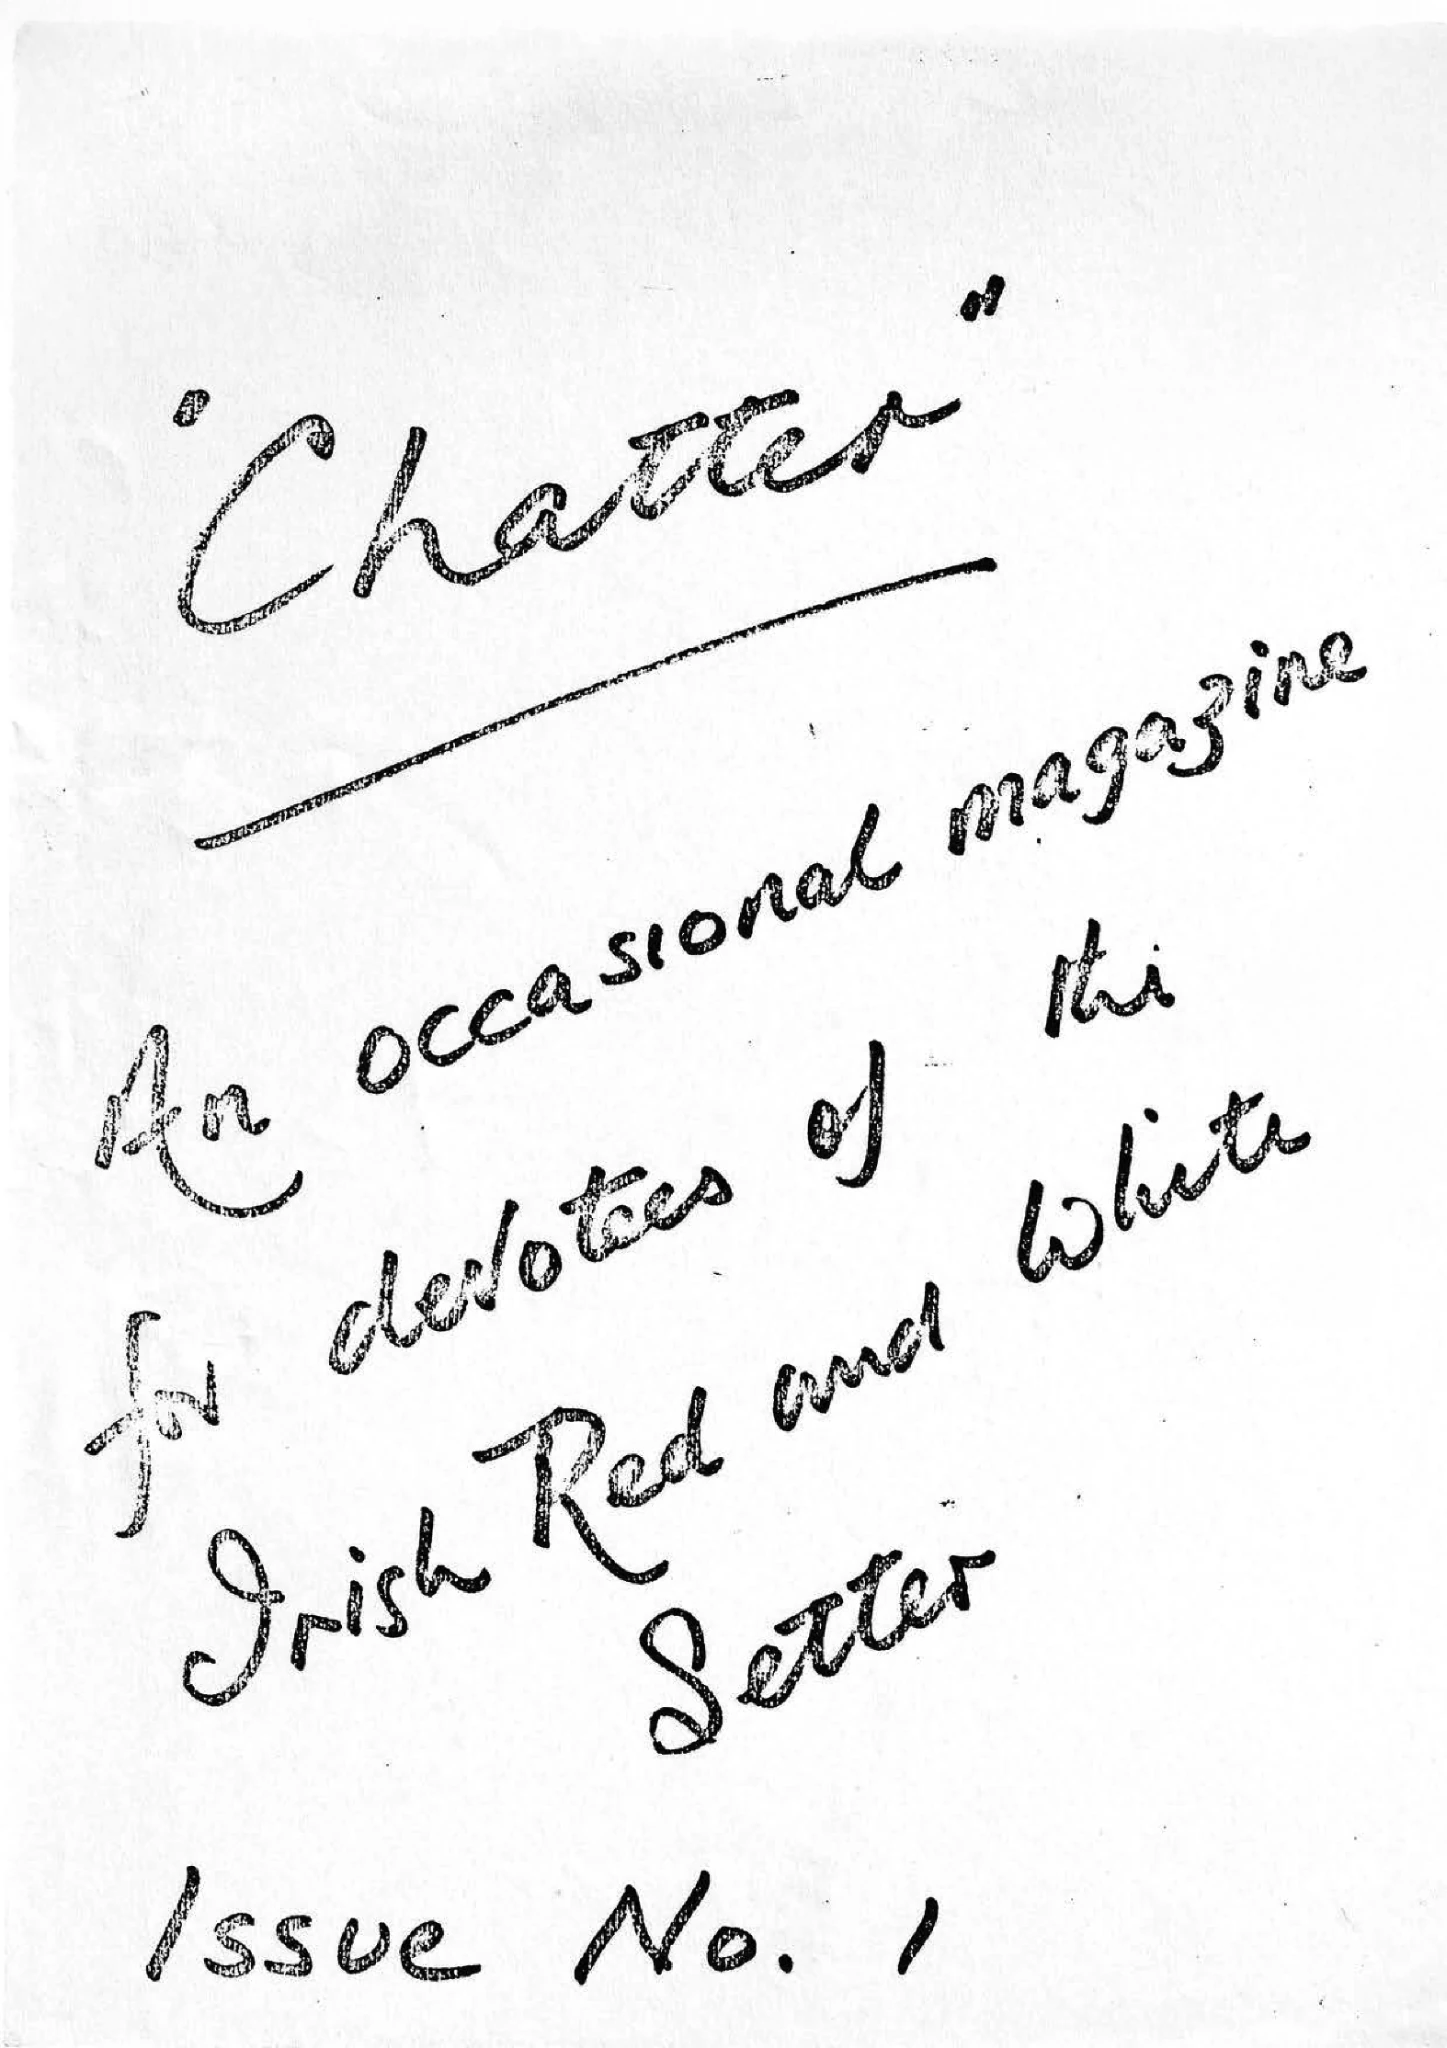 "Chatter"
An occasional magazine
for devotees of the
Irish Red and White
Setter
Issue No. 1